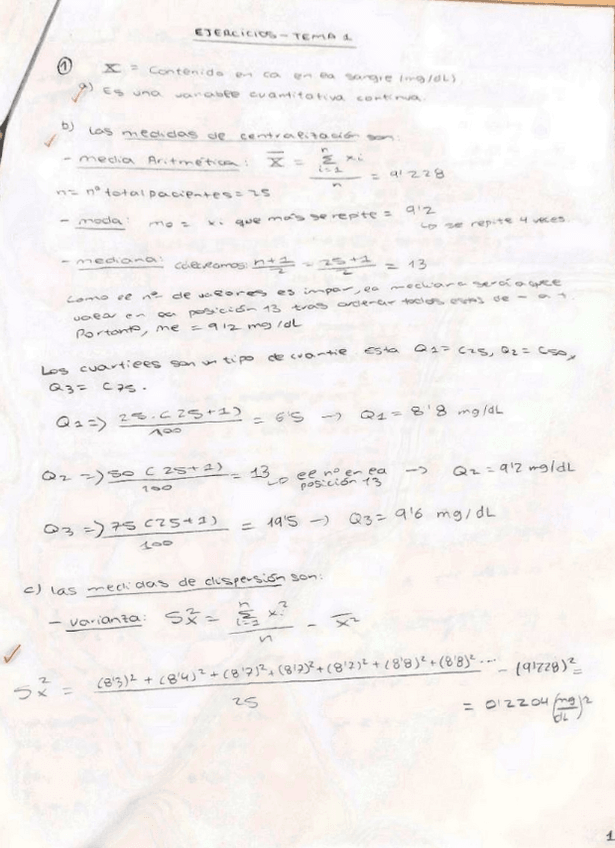 EJERCICIOS - TEMA 1
① X = Contenido en ca en la sangre (mg/dL)
a) Es una variable cuantitativa continua.
b) Las medidas de centralización son:
- media Aritmética: X̄ = Σ_{i=1}^{n} xi / n = 9'228
n = nº total pacientes = 25
- moda: mo = xi que más se repite = 9'2
↳ se repite 4 veces.
- mediana: calculamos: n+1/2 = 25+1/2 = 13
Como el nº de valores es impar, la mediana será aquel
valor en la posición 13 tras ordenar todos estos de - a +.
Portanto, me = 9'2 mg/dL
Los cuartiles son un tipo de cuantil esta Q1 = C25, Q2 = C50,
Q3 = C75.
Q1 => 25·(25+1)/100 = 6'5 → Q1 = 8'8 mg/dL
Q2 => 50(25+1)/100 = 13 ↳ el nº en la posición 13 → Q2 = 9'2 mg/dL
Q3 => 75(25+1)/100 = 19'5 → Q3 = 9'6 mg/dL
c) Las medidas de dispersión son:
- varianza: Sx² = Σ_{i=1}^{n} xi² / n - x̄²
Sx² = (8'3)² + (8'4)² + (8'7)² + (8'7)² + (8'2)² + (8'8)² + (8'8)² ... / 25 - (9'228)² =
= 0'2204 (mg/dL)²
1